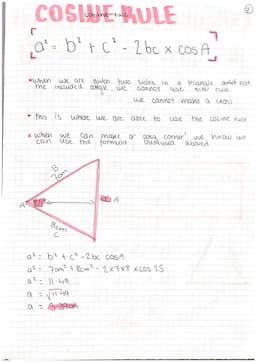 COSINE RULE
2
a² = b² + c² - 2bc x cos A
• when we are given two sides in a triangle and not
the included angle, we cannot use sine rule.
we cannot make a cross
• this is where we are able to use the cosine rule
• when we can make a cosy corner' we know we
can use the formula outlined above.
B
7cm
A
A
8cm
C
a² = b² + c² - 2bc cos A
a² = 7cm² + 8cm² - 2x7x8 x cos 35
a² = 11.49...
a = √11.49
a =